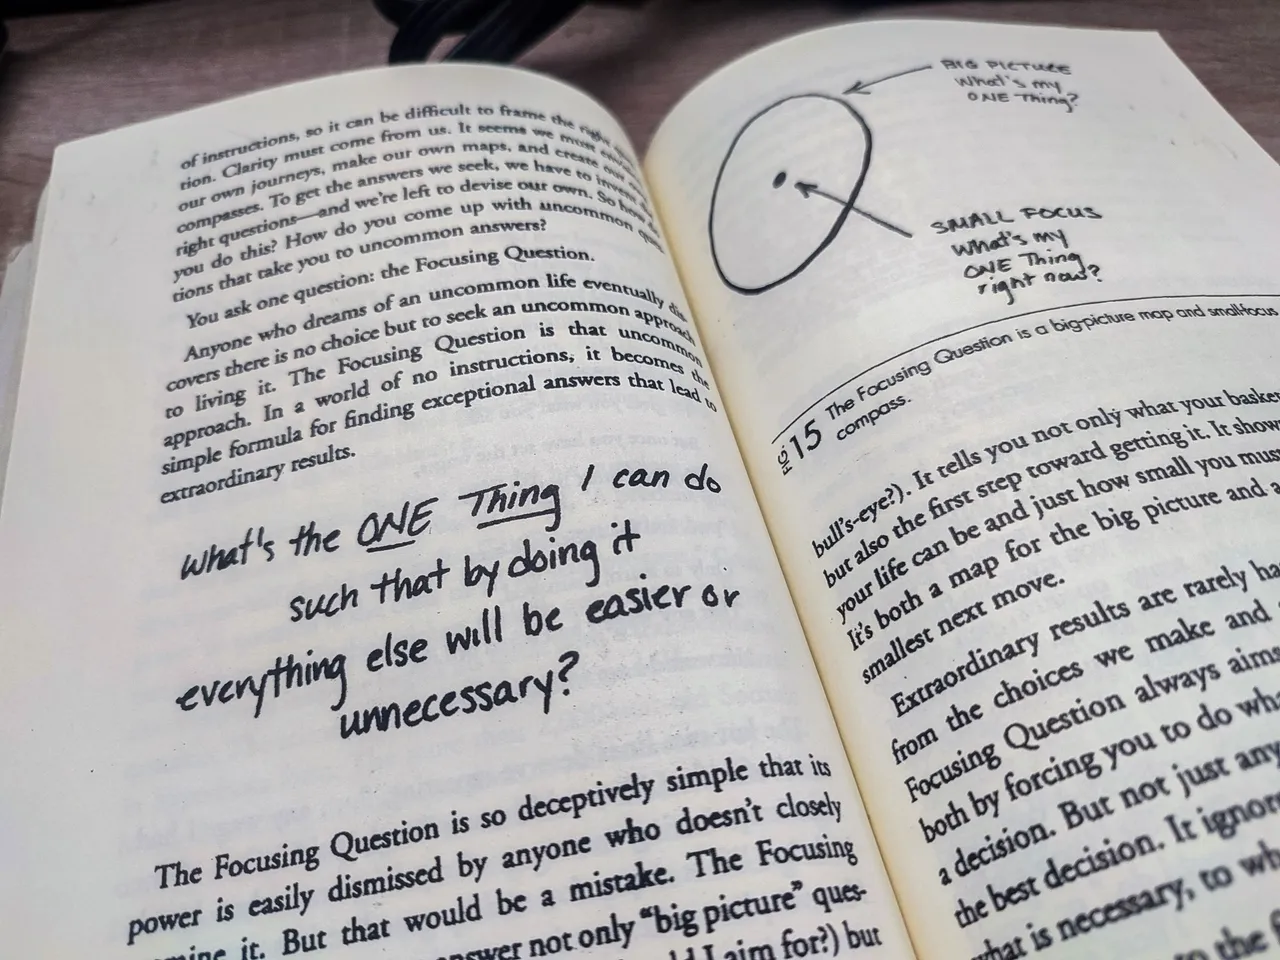 of instructions, so it can be difficult to frame the right
tion. Clarity must come from us. It seems we must
our own journeys, make our own maps, and create our own
compasses. To get the answers we seek, we have to invent
right questions—and we're left to devise our own. So how do
you do this? How do you come up with uncommon ques
tions that take you to uncommon answers?
You ask one question: the Focusing Question.
Anyone who dreams of an uncommon life eventually dis
covers there is no choice but to seek an uncommon approach
to living it. The Focusing Question is that uncommon
approach. In a world of no instructions, it becomes the
simple formula for finding exceptional answers that lead to
extraordinary results.
what's the ONE Thing I can do
such that by doing it
everything else will be easier or
unnecessary?
The Focusing Question is so deceptively simple that its
power is easily dismissed by anyone who doesn't closely
mine it. But that would be a mistake. The Focusing
answer not only “big picture” ques-
I aim for?) but
BIG PICTURE
What's my
ONE Thing?
SMALL FOCUS
What's my
ONE Thing
right now?
FIG. 15 The Focusing Question is a big-picture map and small-focus
compass.
bull's-eye?). It tells you not only what your basket
but also the first step toward getting it. It shows
your life can be and just how small you must
It's both a map for the big picture and a
smallest next move.
Extraordinary results are rarely ha
from the choices we make and
Focusing Question always aims
both by forcing you to do wha
a decision. But not just any
the best decision. It ignor
what is necessary, to wh
to the fi